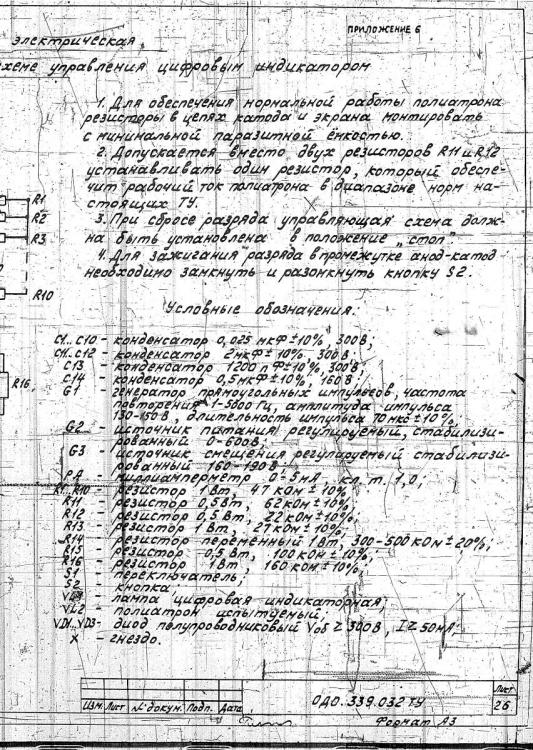 ПРИЛОЖЕНИЕ 6
электрическая
схеме управления цифровым индикатором
1. Для обеспечения нормальной работы полиатрона
резисторы в цепях катода и экрана монтировать
с минимальной паразитной ёмкостью.
2. Допускается вместо двух резисторов R11 и R12
устанавливать один резистор, который обеспе-
чит рабочий ток полиатрона в диапазоне норм на-
стоящих ТУ.
3. При сбросе разряда управляющая схема долж-
на быть установлена в положение „стоп"
4. Для зажигания разряда в промежутке анод-катод
необходимо замкнуть и разомкнуть кнопку S2.
R1
R2
R3
R10
R16
Условные обозначения:
С1..С10 - конденсатор 0,025 мкФ ±10%, 300В;
С11..С12 - конденсатор 2мкФ ±10%, 300В;
С13 - конденсатор 1200 пФ ±10%, 300В;
С14 - конденсатор 0,5мкФ ±10%, 160В;
G1 - генератор прямоугольных импульсов, частота
повторения 1-5000 Гц, амплитуда импульса
130-150В, длительность импульса 70мкс ±10%;
G2 - источник питания регулируемый, стабилизи-
рованный 0-600В;
G3 - источник смещения регулируемый стабилизи-
рованный 160-190В
РА - миллиамперметр 0-5мА, кл. т. 1,0;
R1..R10 - резистор 1Вт, 47 кОм ±10%;
R11 - резистор 0,5Вт, 62кОм ±10%;
R12 - резистор 0,5Вт, 22кОм ±10%;
R13 - резистор 1Вт, 27кОм ±10%;
R14 - резистор переменный 1Вт, 300-500 кОм ±20%;
R15 - резистор 0,5Вт, 100кОм ±10%;
R16 - резистор 1Вт, 160кОм ±10%;
S1 - переключатель;
S2 - кнопка
- лампа цифровая индикаторная;
VL2 - полиатрон испытуемый;
VD1..VD3- диод полупроводниковый Vоб ≥ 300В, I ≥ 50мА;
Х - гнездо.
Изм. Лист № докум. Подп. Дата
ОДО.339.032 ТУ
Лист
26
Формат А3